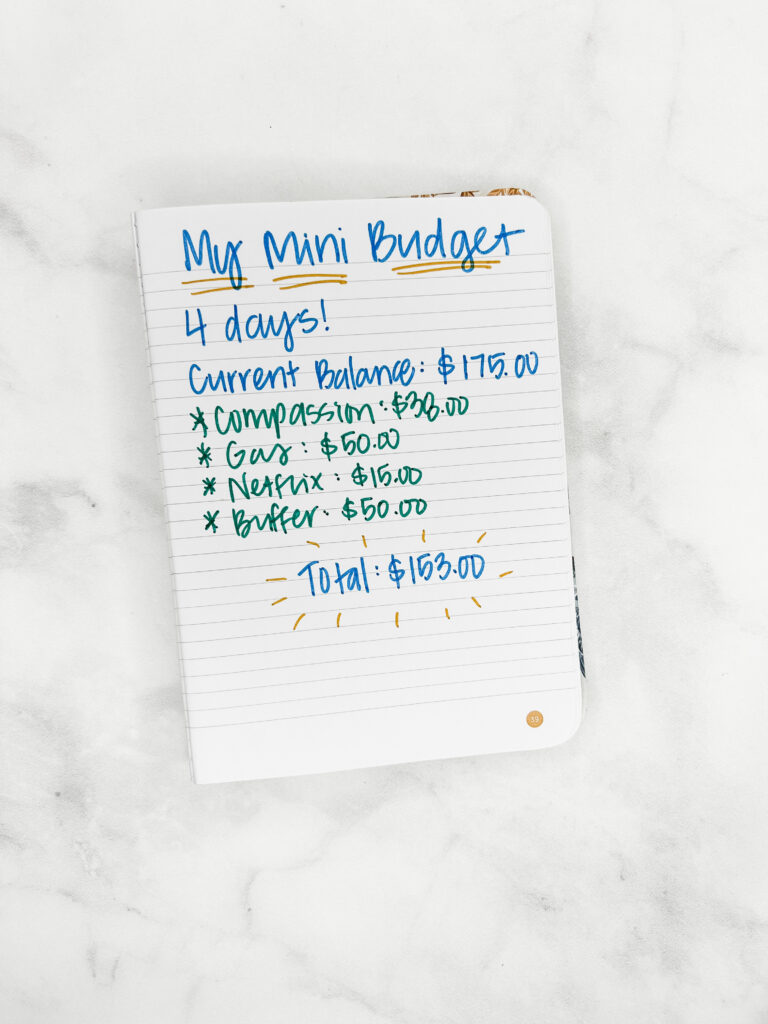 My Mini Budget
4 days!
Current Balance: $175.00
* Compassion: $38.00
* Gas: $50.00
* Netflix: $15.00
* Buffer: $50.00
Total: $153.00
39